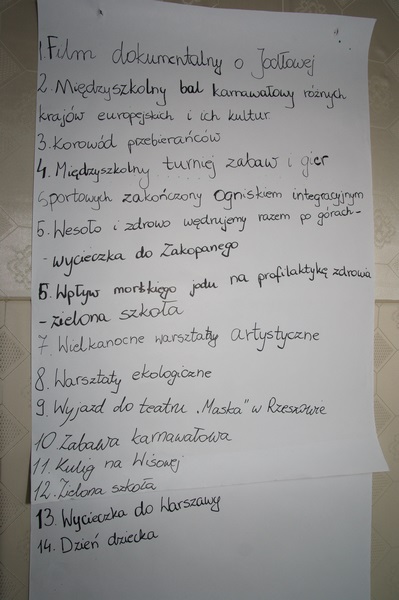 1. Film dokumentalny o Jodłowej
2. Międzyszkolny bal karnawałowy różnych
krajów europejskich i ich kultur
3. Korowód przebierańców
4. Międzyszkolny turniej zabaw i gier
sportowych zakończony ogniskiem integracyjnym
5. Wesoło i zdrowo wędrujemy razem po górach-
- wycieczka do Zakopanego
6. Wpływ morskiego jodu na profilaktykę zdrowia
- zielona szkoła
7. Wielkanocne warsztaty artystyczne
8. Warsztaty ekologiczne
9. Wyjazd do teatru „Maska" w Rzeszowie
10. Zabawa karnawałowa
11. Kulig na Wisowej
12. Zielona szkoła
13. Wycieczka do Warszawy
14. Dzień dziecka